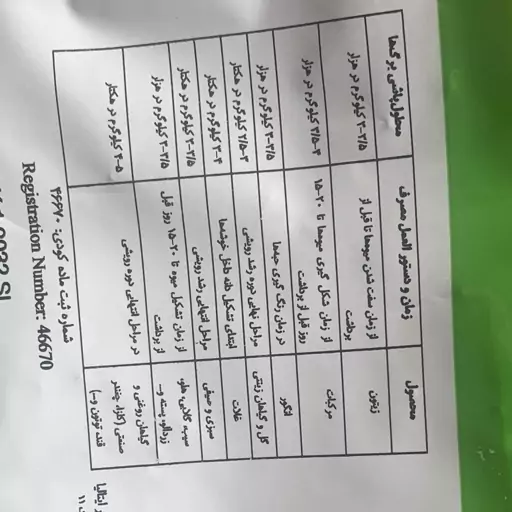 محصول زمان و دستور العمل مصرف محلول‌پاشی برگ‌ها
زیتون از زمان سفت شدن میوه‌ها تا قبل از برداشت ۲-۳/۵ کیلوگرم در هزار
مرکبات از زمان شکل گیری میوه‌ها تا ۲۰-۱۵ روز قبل از برداشت ۳-۳/۵ کیلوگرم در هزار
انگور در زمان رنگ گیری حبه‌ها ۲-۳/۵ کیلوگرم در هزار
گل و گیاهان زینتی مراحل نهایی دوره رشد رویشی ۲-۲/۵ کیلوگرم در هکتار
غلات ابتدای تشکیل دانه داخل خوشه‌ها ۳-۴ کیلوگرم در هکتار
سبزی و صیفی مراحل انتهایی رشد رویشی ۲-۳/۵ کیلوگرم در هکتار
سیب، گلابی، هلو، زردآلو، پسته و... از زمان تشکیل میوه تا ۲۰-۱۵ روز قبل از برداشت ۲-۳/۵ کیلوگرم در هزار
گیاهان روغنی و صنعتی (کلزا، چغندر قند توتون و...) در مراحل انتهایی دوره رویشی ۴-۵ کیلوگرم در هکتار
شماره ثبت ماده کودی: ۴۶۶۷۰
Registration Number: 46670
ایتالیا
۱۱